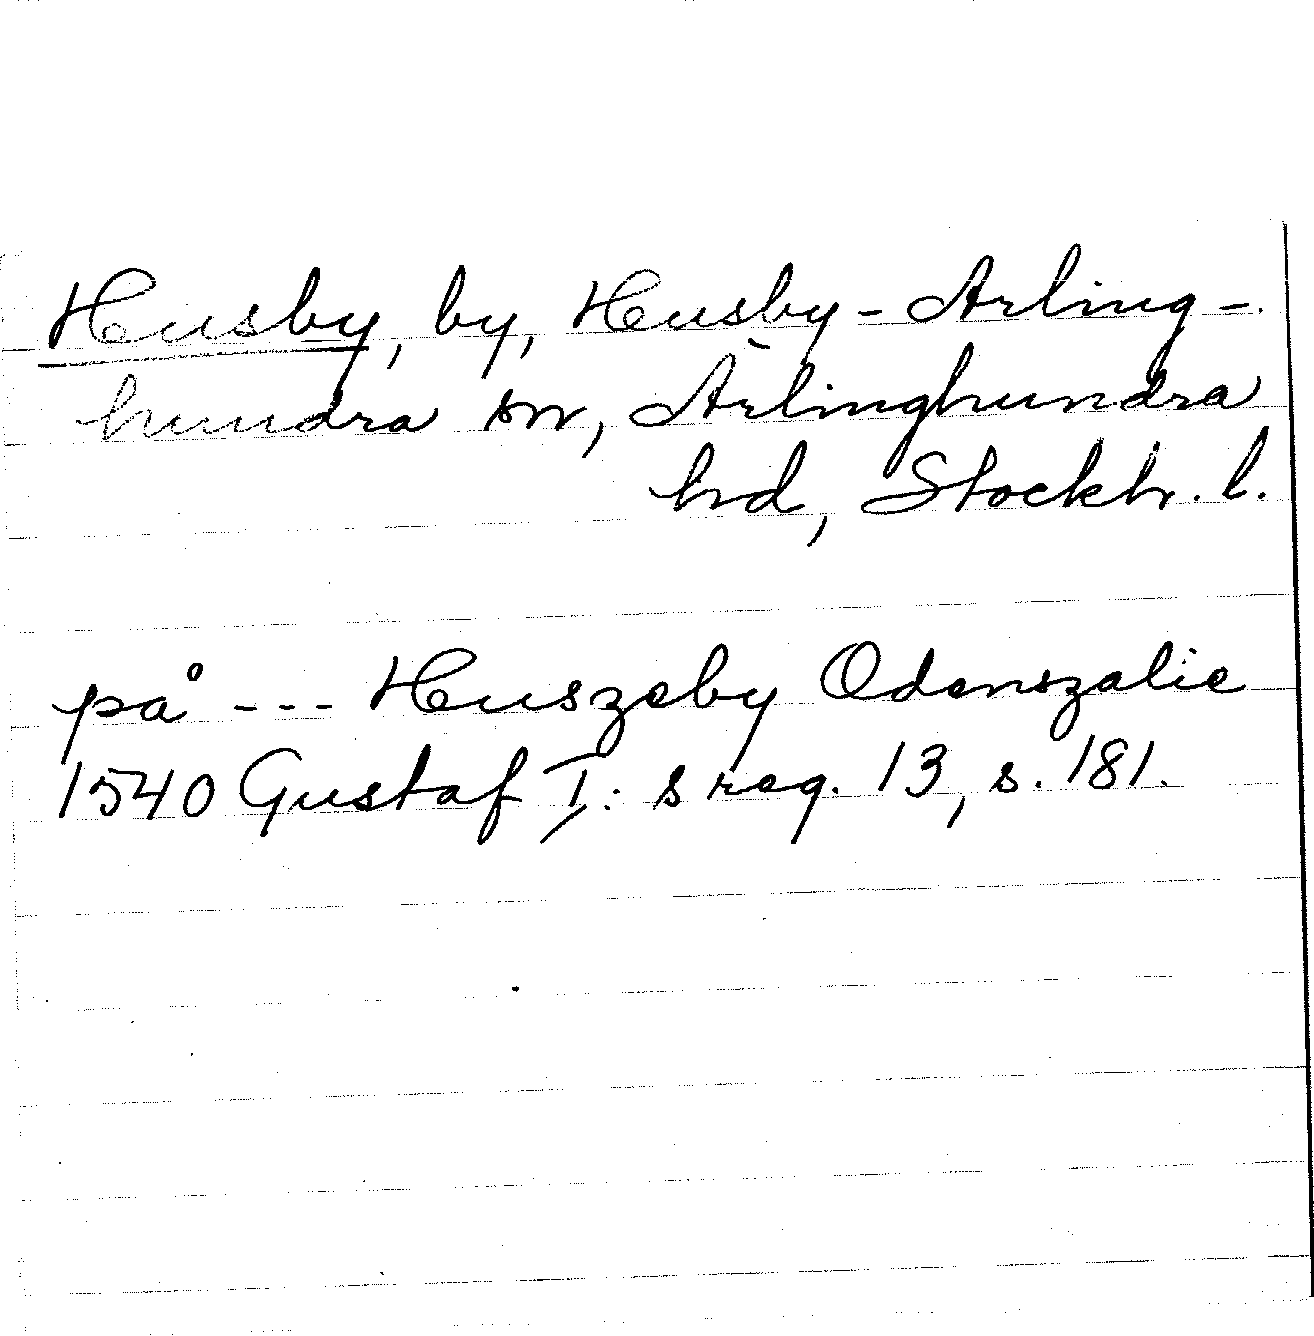 Husby, by, Husby-Ärling-
hundra sn, Ärlinghundra
hd, Stockh. l.
på --- Huszeby Odenszalie
1540 Gustaf I:s reg. 13, s. 181.